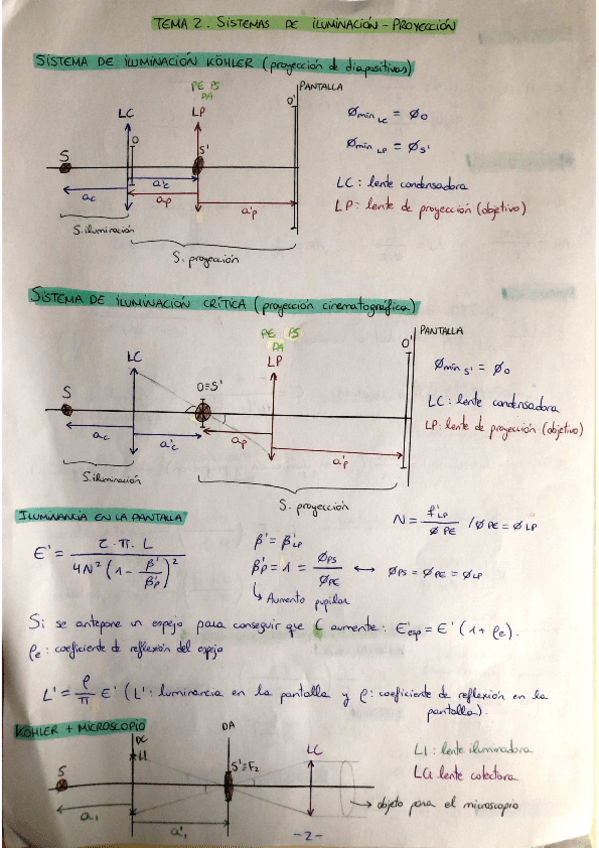 TEMA 2. SISTEMAS DE ILUMINACIÓN - PROYECCIÓN
SISTEMA DE ILUMINACIÓN KÖHLER (proyección de diapositivas)
PE PS
DA
LC LP O' PANTALLA
S O S'
ac a'c
ap a'p
S. iluminación
S. proyección
Ømin LC = ØO
Ømin LP = ØS'
LC: lente condensadora
LP: lente de proyección (objetivo)
SISTEMA DE ILUMINACIÓN CRÍTICA (proyección cinematográfica)
PE PS
DA
LC LP O' PANTALLA
S O≡S'
ac a'c ap a'p
S. iluminación
S. proyección
Ømin S' = ØO
LC: lente condensadora
LP: lente de proyección (objetivo)
ILUMINANCIA EN LA PANTALLA
E' = τ · π · L / 4N² (1 - β'/β'p)²
β' = β'LP
β'p = 1 = ØPS / ØPE ⟷ ØPS = ØPE = ØLP
↳ Aumento pupilar
N = f'LP / ØPE / ØPE = ØLP
Si se antepone un espejo para conseguir que L aumente: E'esp = E' (1 + ρe).
ρe: coeficiente de reflexión del espejo
L' = ρ/π E' (L': luminancia en la pantalla y ρ: coeficiente de reflexión en la
pantalla).
KÖHLER + MICROSCOPIO
DC
LI
DA
S S'≡F2 LC
a1 a'1
LI: lente iluminadora
LC: lente colectora
→ objeto para el microscopio
-2-